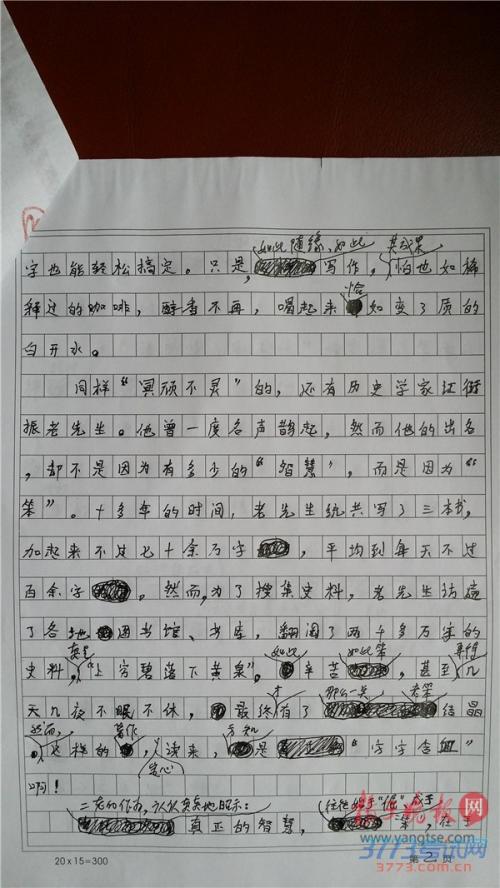 如此随缘、如此 其成果
字也能轻松搞定。只是, 写作,怕也如稀
恰
释过的咖啡,醇香不再,喝起来 如变了质的
白开水。
同样“冥顽不灵”的,还有历史学家江
振老先生。他曾一度名声鹊起,然而他的出名
,却不是因为有多少的“智慧”,而是因为“
笨”。十多年的时间,老先生统共写了三本书,
加起来不过七十余万字 ,平均到每天不过
百余字 。然而,为了搜集史料,老先生
了各地 图书馆、书库,翻阅了两千多万字的
真是 如此 如此笨
史料,“上穷碧落下黄泉”。 辛苦 ,甚至几
才 那么一点
天几夜不眠不休, 最终有了 结晶
然而, 著作 方知
,这样的 ,人读来, 是 “字字含血”
啊!
二者的作为,
真正的智慧, “笨”,在
20×15=300
第2页
www.yangtse.com
3773考试网
www.3773.com